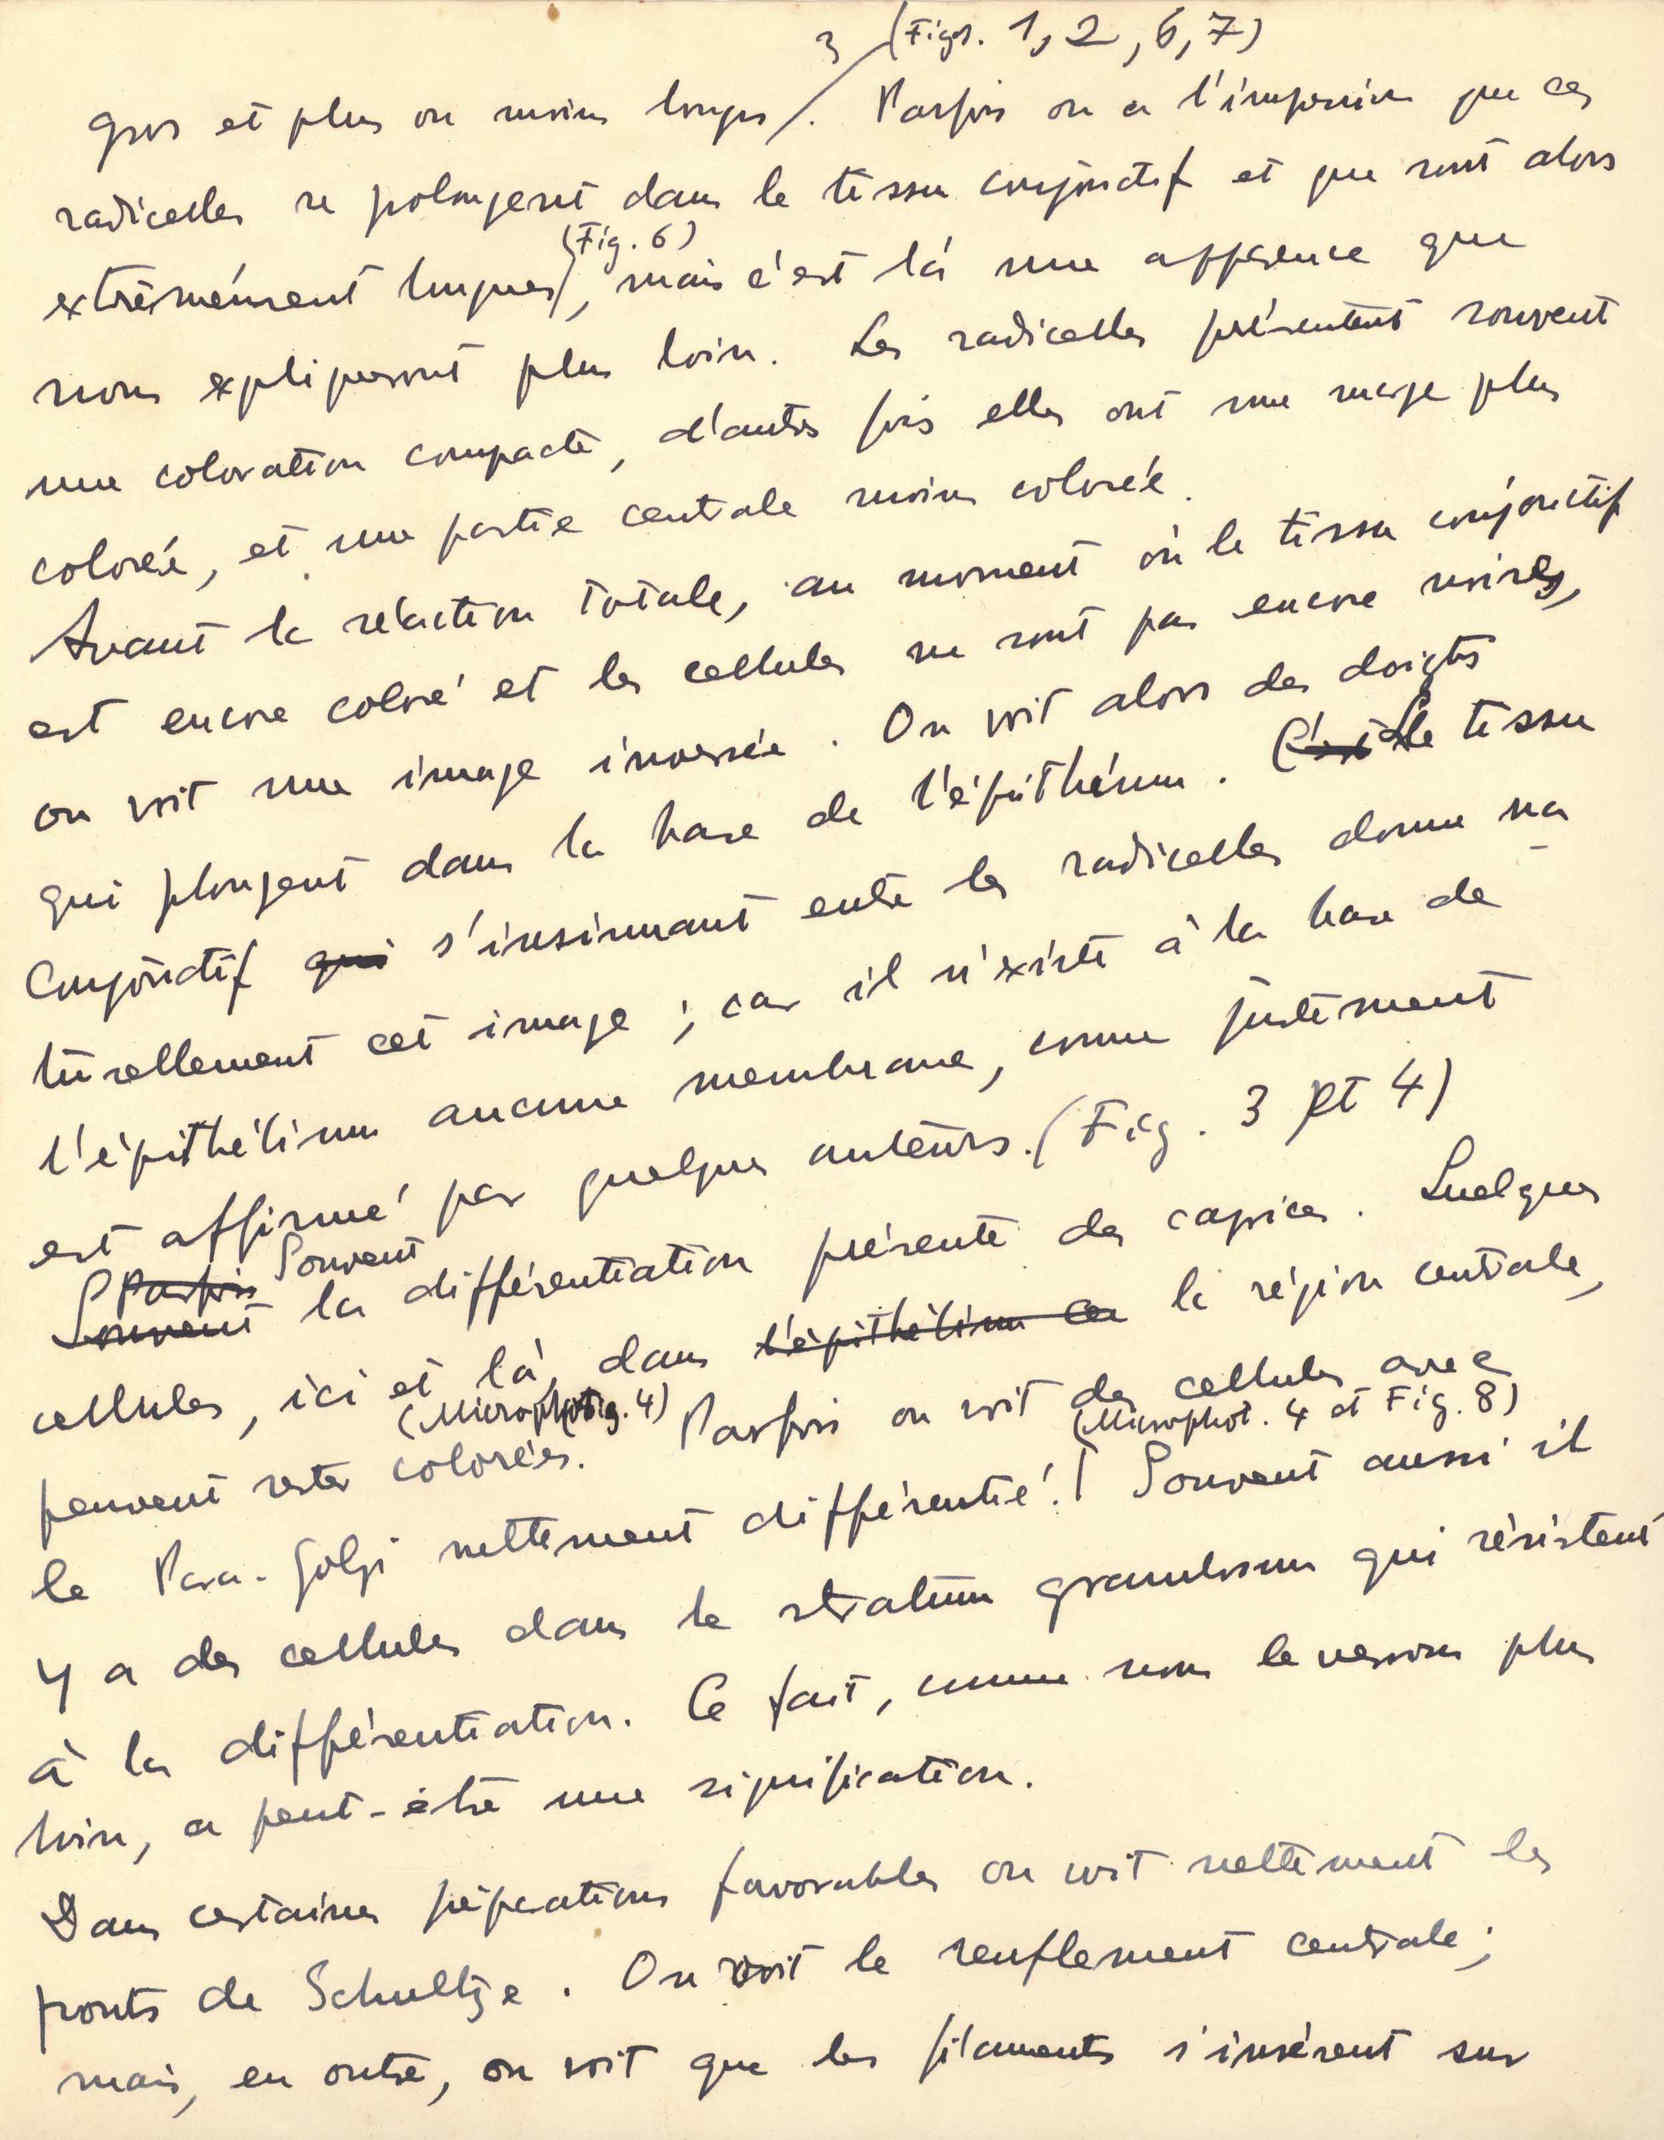 3 (Figs. 1, 2, 6, 7)
gros et plus ou moins longs. Parfois on a l'impression que ces
radicelles se polongent dans le tissu conjonctif et que sont alors
(Fig. 6)
extrèmément longues, mais c'est là une apparence que
nous expliqueront plus loin. Les radicelles présentent souvent
une coloration compacte, d'autres fois elles ont une marge plus
colorée, et une partie centrale moins colorée.
Avant la réaction totale, au moment où le tissu conjonctif
est encore coloré et les cellules ne sont pas encore noires,
on voit une image inversée. On voit alors des doigts
qui plongent dans la base de l'épithélium. C'est Le tissu
Conjonctif qui s'insinuant entre les radicelles donne na
turellement cet image; car il n'existe à la base de
l'épithélium aucune membrane, comme justement
est affirmé par quelques auteurs. (Fig. 3 et 4)
Parfois Souvent
Souvent la différentiation présente des caprices. Quelques
cellules, ici et là, dans l'épithélium la région centrale,
(Microphot. 4)
peuvent rester colorées. Parfois on voit des cellules avec
(Microphot. 4 et Fig. 8)
le Para-Golgi nettement différentié. Souvent aussi il
y a des cellules dans le stratum granulosum qui résistent
à la différentiation. Ce fait, comme nous le verrons plus
loin, a peut-être une signification.
Dans certaines préparations favorables on voit nettement les
ponts de Schultze. On voit le renflement centrale;
mais, en outre, on voit que les filaments s'insèrent sur